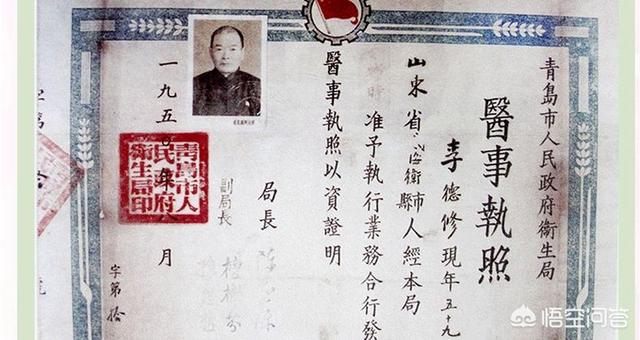 青島市人民政府衞生局
醫事執照
李德修現年五十九
山東省海衛縣市人經本局
准予執行業務合行發
醫事執照以資證明
局長
副局長
一九五〇年 月
青島市人民政府衛生局印
字第拾
悟空问答